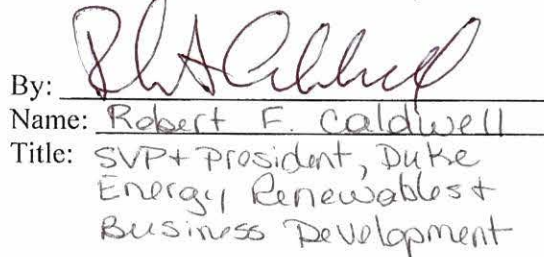 By:
Name: Robert F. Caldwell
Title: SVP + President, Duke
Energy Renewables +
Business Development